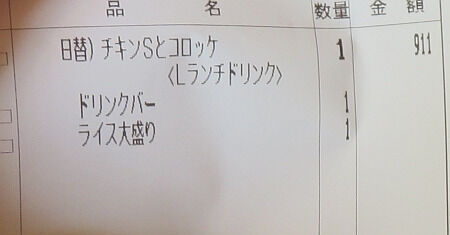 品 名 数量 金 額
日替)チキンSとコロッケ 1 911
<Lランチドリンク>
ドリンクバー 1
ライス大盛り 1